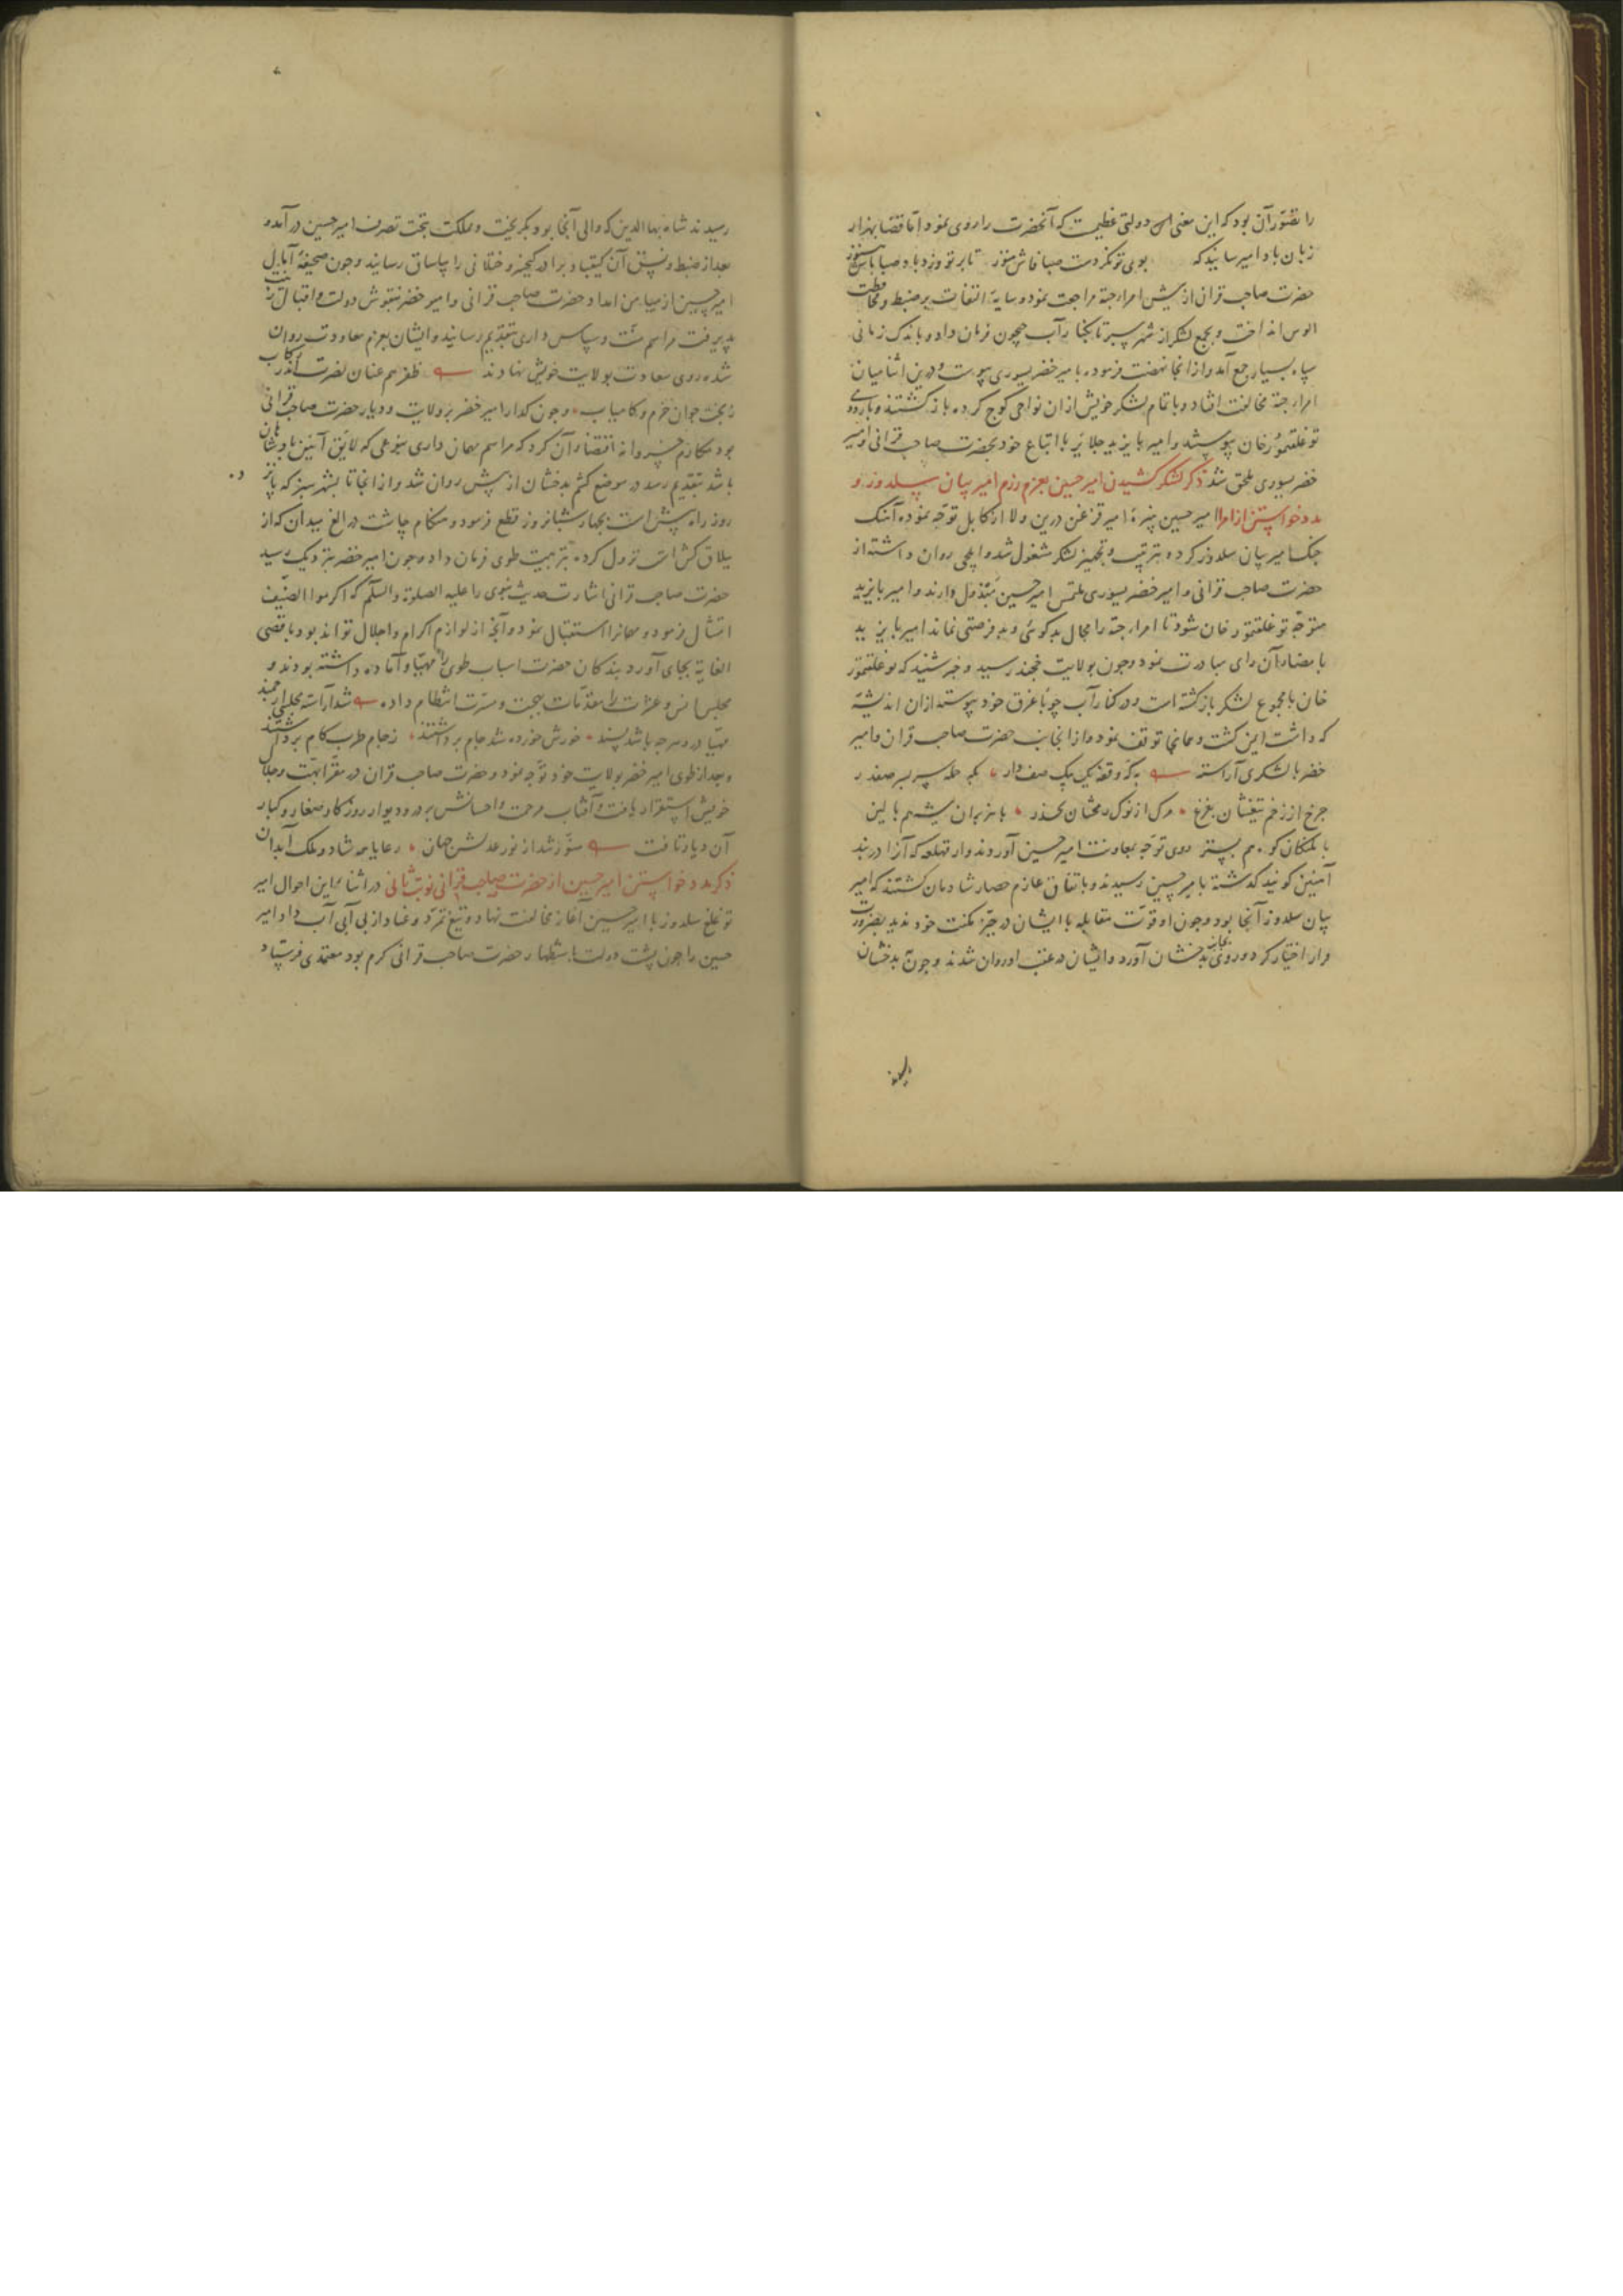 را تصوّر آن بود که این معنی اس دولتی عظیمست که آنحضرت را روی نمود اما قضا بهزار
زبان با و امیر سانید که بوی تو نکردست صبا فاش هنوز تا بر تو وزد باد صبا باش هنوز
حضرت صاحب قران از پیش امراء جته مراجعت نموده سایهٔ التفات بر ضبط و محافظت
الوس انداخت و بجمع لشکر از شهر سبز تا بکنار آب جیحون فرمان داد و باندک زمانی
سپاه بسیار جمع آمد و از انجا نهضت فرموده بامیر خضر یسوری پیوست و درین اثنا میان
امراء جته مخالفت افتاد و با تمام لشکر خویش ازان نواحی کوچ کرده باز گشتند و باردوی
توغلقتمور خان پیوستند و امیر بایزید جلایر با اتباع خود بحضرت صاحب قرانی و امیر
خضر یسوری ملحق شد ذکر لشکر کشیدن امیر حسین بعزم رزم امیر بیان سلدوز و
مدد خواستن از امرا امیر حسین نبیرهٔ امیر قزغن درین ولا از کابل توجه نموده آهنک
جنک امیر بیان سلدوز کرده بترتیب و تجهیز لشکر مشغول شد و ایلچی روان داشته از
حضرت صاحب قرانی و امیر خضر یسوری ملتمس امیر حسین مبذول دارند و امیر بایزید
متوجه توغلقتمور خان شود تا امراء جته را مجال بدکوئی و بد فرصتی نماند امیر بایزید
بامضاء آن رای مبادرت نمود و چون بولایت خجند رسید و خبر شنید که توغلقتمور
خان با مجموع لشکر باز گشته است و در کنار آب چو باغرق خود پیوسته ازان اندیشه
که داشت ایمن گشت و همانجا توقف نمود و از انجانب حضرت صاحب قران و امیر
خضر با لشکری آراسته به که وقفه یک یک صف دار بکه حمله سر بسر صفدر
چرخ از زخم تیغشان بفزع مرک از نوک رمحشان بحذر با هزبران بیشه هم بالین
با پلنکان کوه هم بستر روی توجه بمعاونت امیر حسین آوردند و از قهلغه که آنرا دربند
آهنین کویند گذشته بامیر حسین رسیدند و باتفاق عازم حصار شادمان گشتند که امیر
بیان سلدوز آنجا بود و چون او قوت مقابله با ایشان در حیّز مکنت خود ندید بضرورت
فرار اختیار کرد و روی بجانب بدخشان آورد و ایشان در عقب او روان شدند و چون بدخشان
رسیدند شاه بهاالدین که والی آنجا بود بکریخت و مملکت بتحت تصرف امیر حسین درآمد و
بعد از ضبط و نسق آن کیقباد برادر کیخسرو ختلانی را بیاساق رسانید و چون صحیفهٔ آمال
امیر حسین از میامن امداد حضرت صاحب قرانی و امیر خضر بنقوش دولت و اقبال زینت
پذیرفت مراسم منّت و سپاس داری بتقدیم رسانید و ایشان بعزم معاودت روان
شده روی سعادت بولایت خویش نهادند ظفر هم عنان نصرت اندر رکاب
ز بخت جوان خرّم و کامیاب و چون گذار امیر خضر بر ولایت و دیار حضرت صاحب قرانی
بود مکارم خسروانه اقتضاء آن کرد که مراسم مهمان داری بنوعی که لایق آئین پادشاهان
باشد بتقدیم رسد در موضع کشم بدخشان از پیش روان شد و از انجا تا بشهر سبز که پانزده
روزه راه پیش است بچهار شبانروز قطع فرمود و هنگام چاشت در الغ میدان که از
ییلاق کش است نزول کرده بترتیب طوی فرمان داد و چون امیر خضر نزدیک رسید
حضرت صاحب قرانی اشارت حدیث نبوی را علیه الصلوة والسلم که اکرموا الضیف
امتثال فرمود و مهمانرا استقبال نمود و آنچه از لوازم اکرام و اجلال تواند بود باقصی
الغایة بجای آورد بندگان حضرت اسباب طوی را مهیا و آماده داشته بودند و
مجلس انس و عشرت را بمقدمات بهجت و مسرت انتظام داده شد آراسته مجلسی ارجمند
مهیا درو هرچه باشد پسند خورش خورده شد جام برداشتند ز جام طرب کام برداشتند
و بعد از طوی امیر خضر بولایت خود توجه نمود و حضرت صاحب قران در مقر ابهت و جلال
خویش استقرار یافت و آفتاب مرحمت و احسانش بر در و دیوار روزکار صغار و کبار
آن دیار تافت منوّر شد از نور عدلش جهان رعایا همه شاد و ملک آبادان
ذکر مدد خواستن امیر حسین از حضرت صاحب قرانی نوبت ثانی در اثناء این احوال امیر
توغلغ سلدوز با امیر حسین آغاز مخالفت نهاد و تیغ تمرّد و عناد از بی آبی آب داد و امیر
حسین را چون پشت دولت باستظهار حضرت صاحب قرانی گرم بود معتمدی فرستاد